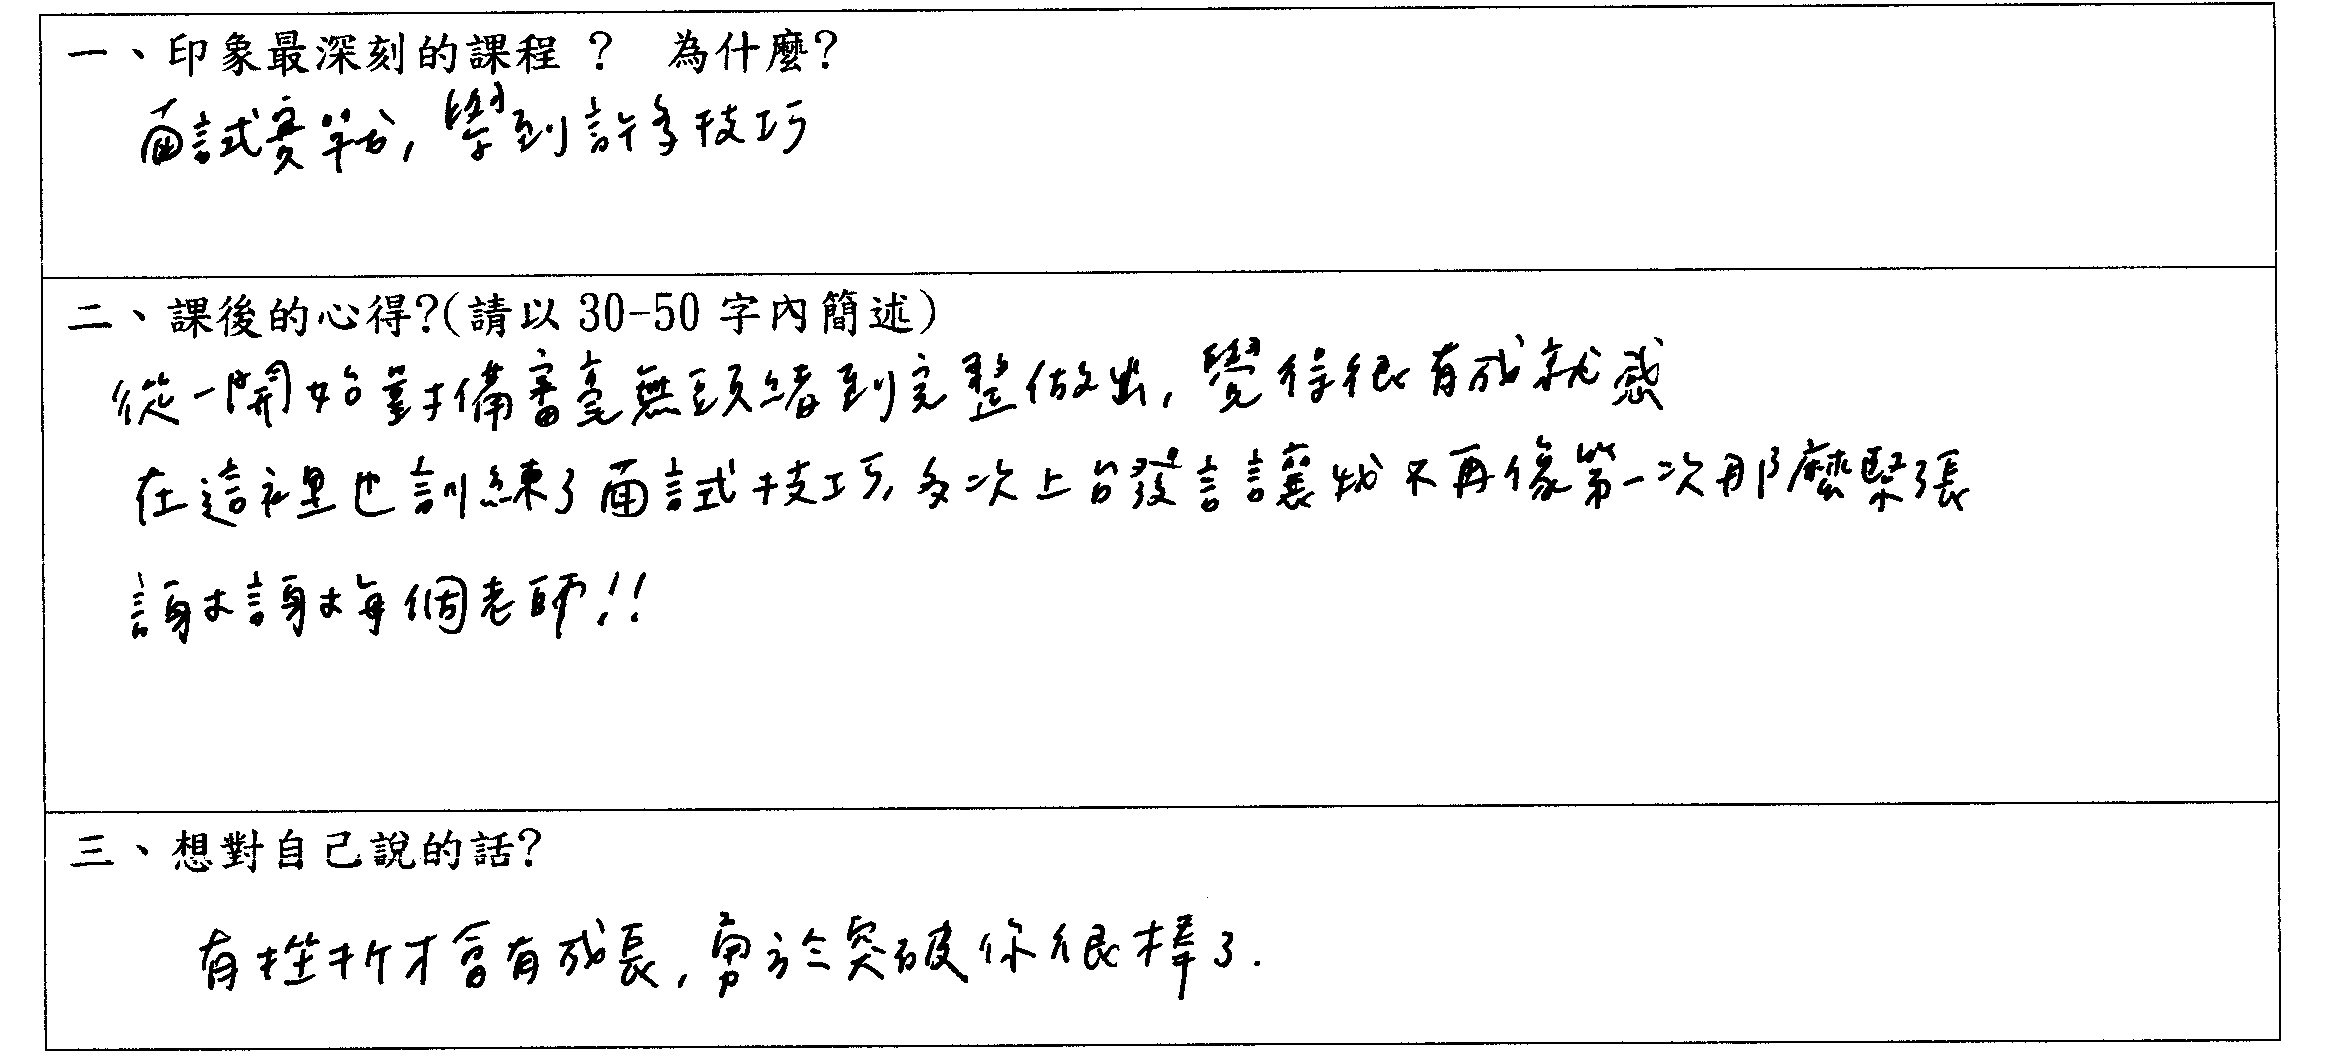 一、印象最深刻的課程 ?　為什麼?
面試實戰, 學到許多技巧
二、課後的心得?(請以 30-50 字內簡述)
從一開始對備審毫無頭緒到完整做出, 覺得很有成就感
在這裡也訓練了面試技巧, 多次上台發言讓我不再像第一次那麼緊張
謝謝每個老師!!
三、想對自己說的話?
有挫折才會有成長, 勇於突破你很棒了.